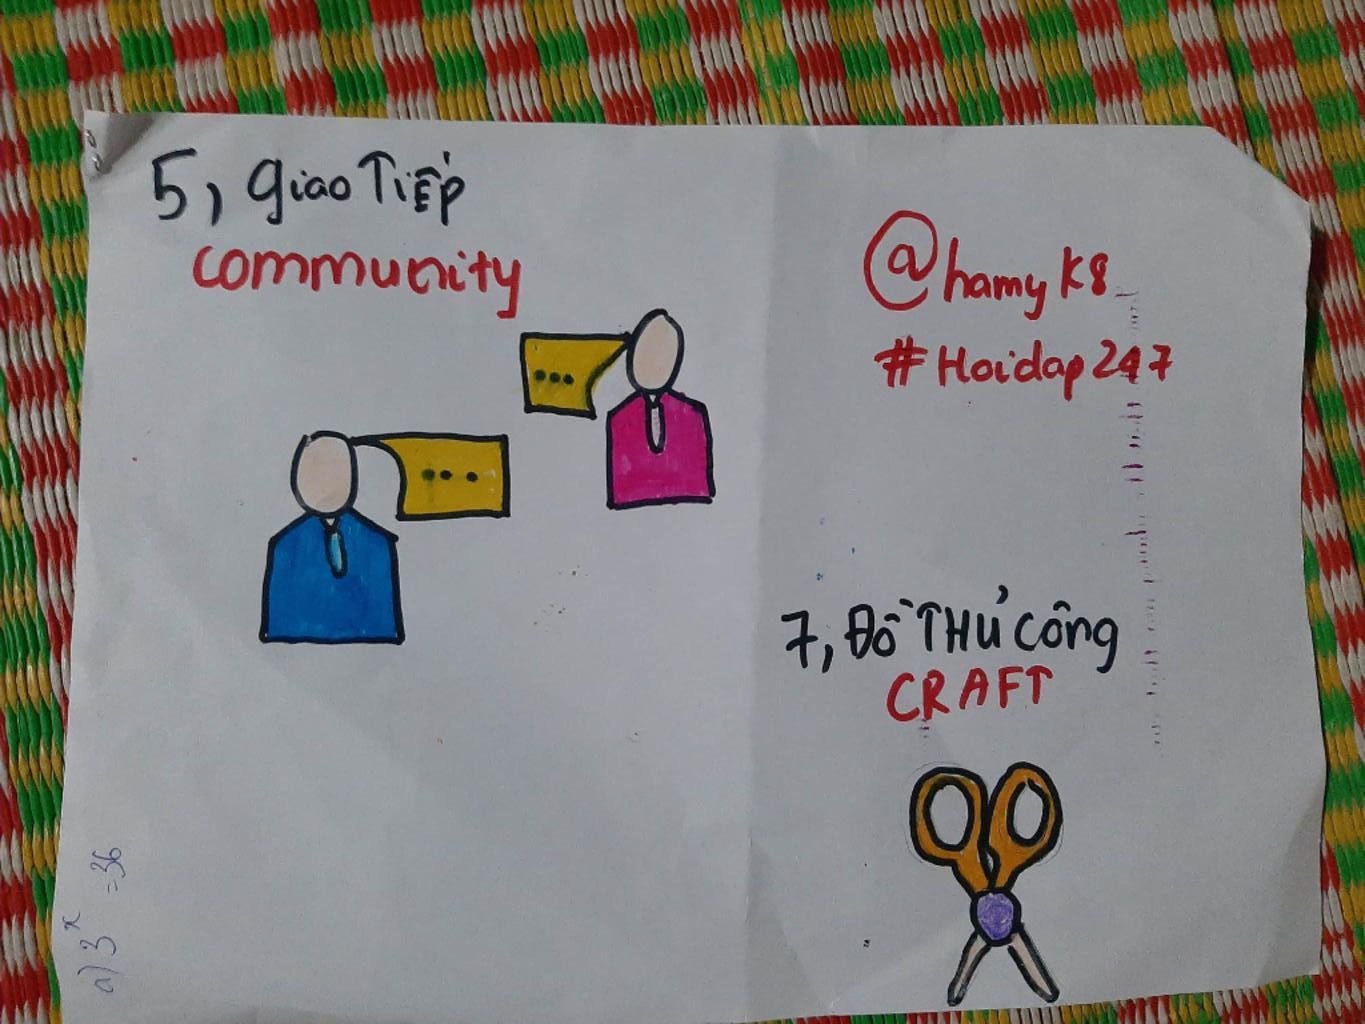 5, Giao Tiếp
Community
@hamyk8
#Hoidap247
7, Đồ Thủ Công
CRAFT
a) 3ˣ = 36